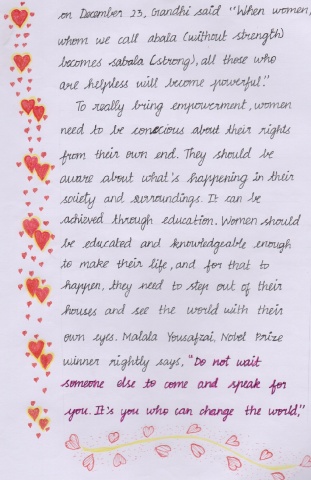 on December 23, Gandhi said "When women,
whom we call abala (without strength)
becomes sabala (strong), all those who
are helpless will become powerful."
To really bring empowerment, women
need to be concious about their rights
from their own end. They should be
aware about what's happening in their
society and surroundings. It can be
achieved through education. Women should
be educated and knowledgeable enough
to make their life, and for that to
happen, they need to step out of their
houses and see the world with their
own eyes. Malala Yousafzai, Nobel Prize
winner rightly says, "Do not wait
someone else to come and speak for
you. It's you who can change the world,"